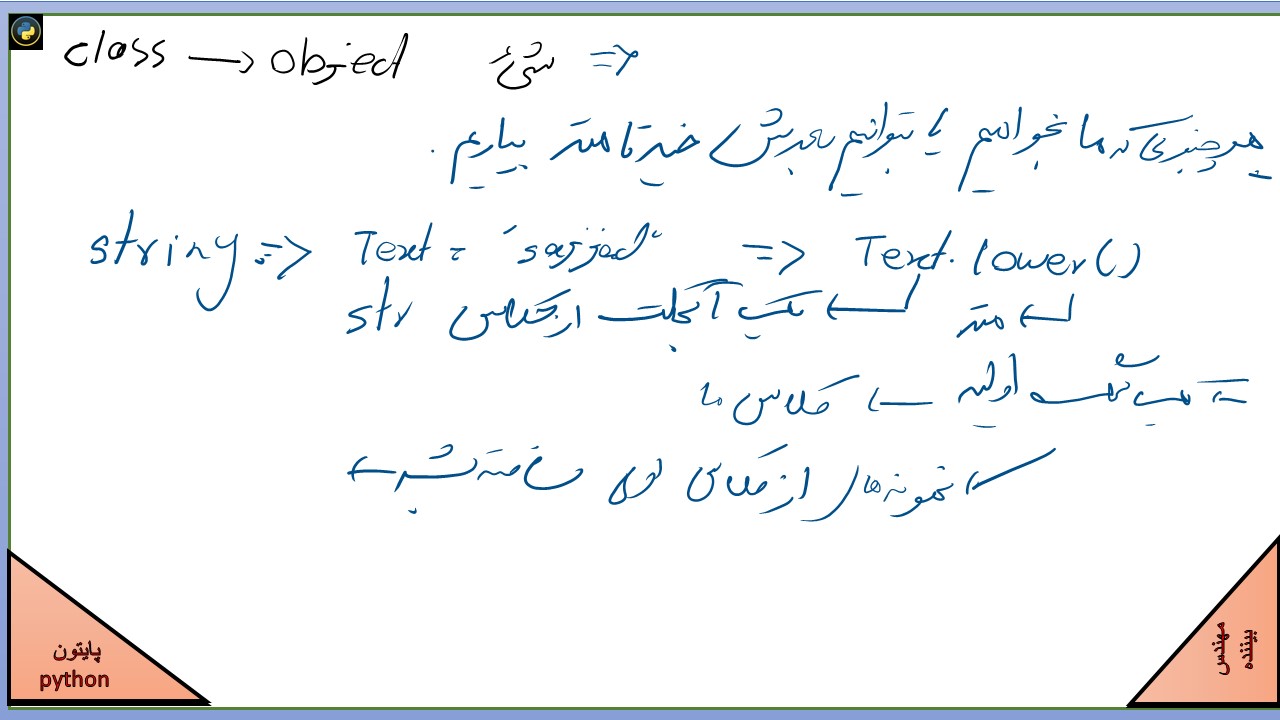 class → object شیٔ =>
هر چیزی که ما بخواهیم یا بتوانیم بعدش چند تا متد بیاریم.
string => Text = "sajjad" => Text.lower()
← متد ← یک آبجکت از کلاس str
اولیه ← کلاس ما
← نمونه های از کلاس ساخته شده ←
پایتون
python
مهندس
بیننده